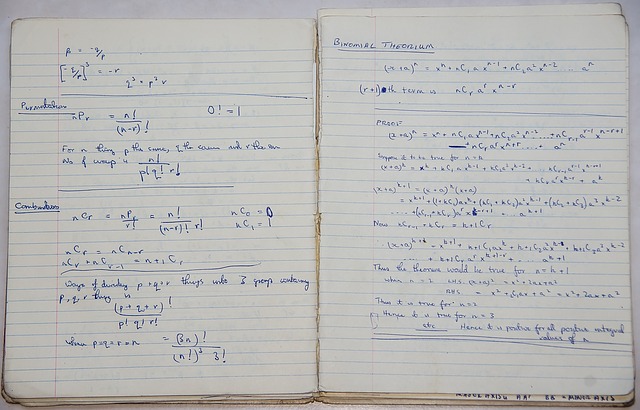 p = -q/p
[-q/p]³ = -r
q³ = p³ r
Permutations
nPr = n!/(n-r)!    0! = 1
For n things p the same, q the same and r the same
No of ways is n!/(p! q! r!)
Combinations
nCr = nPr/r! = n!/((n-r)! r!)    nC0 = 0
nC1 = 1
nCr = nCn-r
nCr + nCr-1 = n+1Cr
Ways of dividing p+q+r things into 3 groups containing
p, q, r things is
(p+q+r)!/(p! q! r!)
where p=q=r=n = (3n)!/((n!)³ 3!)
BINOMIAL THEORIUM
(x+a)ⁿ = xⁿ + nC1 a xⁿ⁻¹ + nC2 a² xⁿ⁻² ... aⁿ
(r+1)th term is nCr aʳ xⁿ⁻ʳ
PROOF
(x+a)ⁿ = xⁿ + nC1 a xⁿ⁻¹ + nC2 a² xⁿ⁻² ... + nCr-1 aʳ⁻¹ xⁿ⁻ʳ⁺¹
+ nCr aʳ xⁿ⁺ʳ ... aⁿ
Suppose it to be true for n = k
(x+a)ᵏ = xᵏ + kC1 a xᵏ⁻¹ + kC2 a² xᵏ⁻² ... + kCr-1 aʳ⁻¹ xᵏ⁻ʳ⁺¹
+ kCr aʳ xᵏ⁻ʳ + aᵏ
(x+a)ᵏ⁺¹ = (x+a)ᵏ (x+a)
= xᵏ⁺¹ + (1+kC1) a xᵏ + (kC1 + kC2) a² xᵏ⁻¹ + (kC2 + kC3) a³ xᵏ⁻²
... + (kCr-1 + kCr) aʳ xᵏ⁻ʳ⁺¹ ... aᵏ⁺¹
Now kCr-1 + kCr = k+1Cr
(x+a)ᵏ⁺¹ = xᵏ⁺¹ + k+1C1 a xᵏ + k+1C2 a² xᵏ⁻¹ + k+1C3 a³ xᵏ⁻²
... + k+1Cr aʳ xᵏ⁺¹⁻ʳ ... aᵏ⁺¹
Thus the theorem would be true for n = k+1
when n = 2 LHS (x+a)² = x² + 2ax + a²
RHS = x² + 2C1 ax + a² = x² + 2ax + a²
Thus it is true for n = 2
Hence it is true for n = 3
etc Hence it is positive for all positive integral
values of n